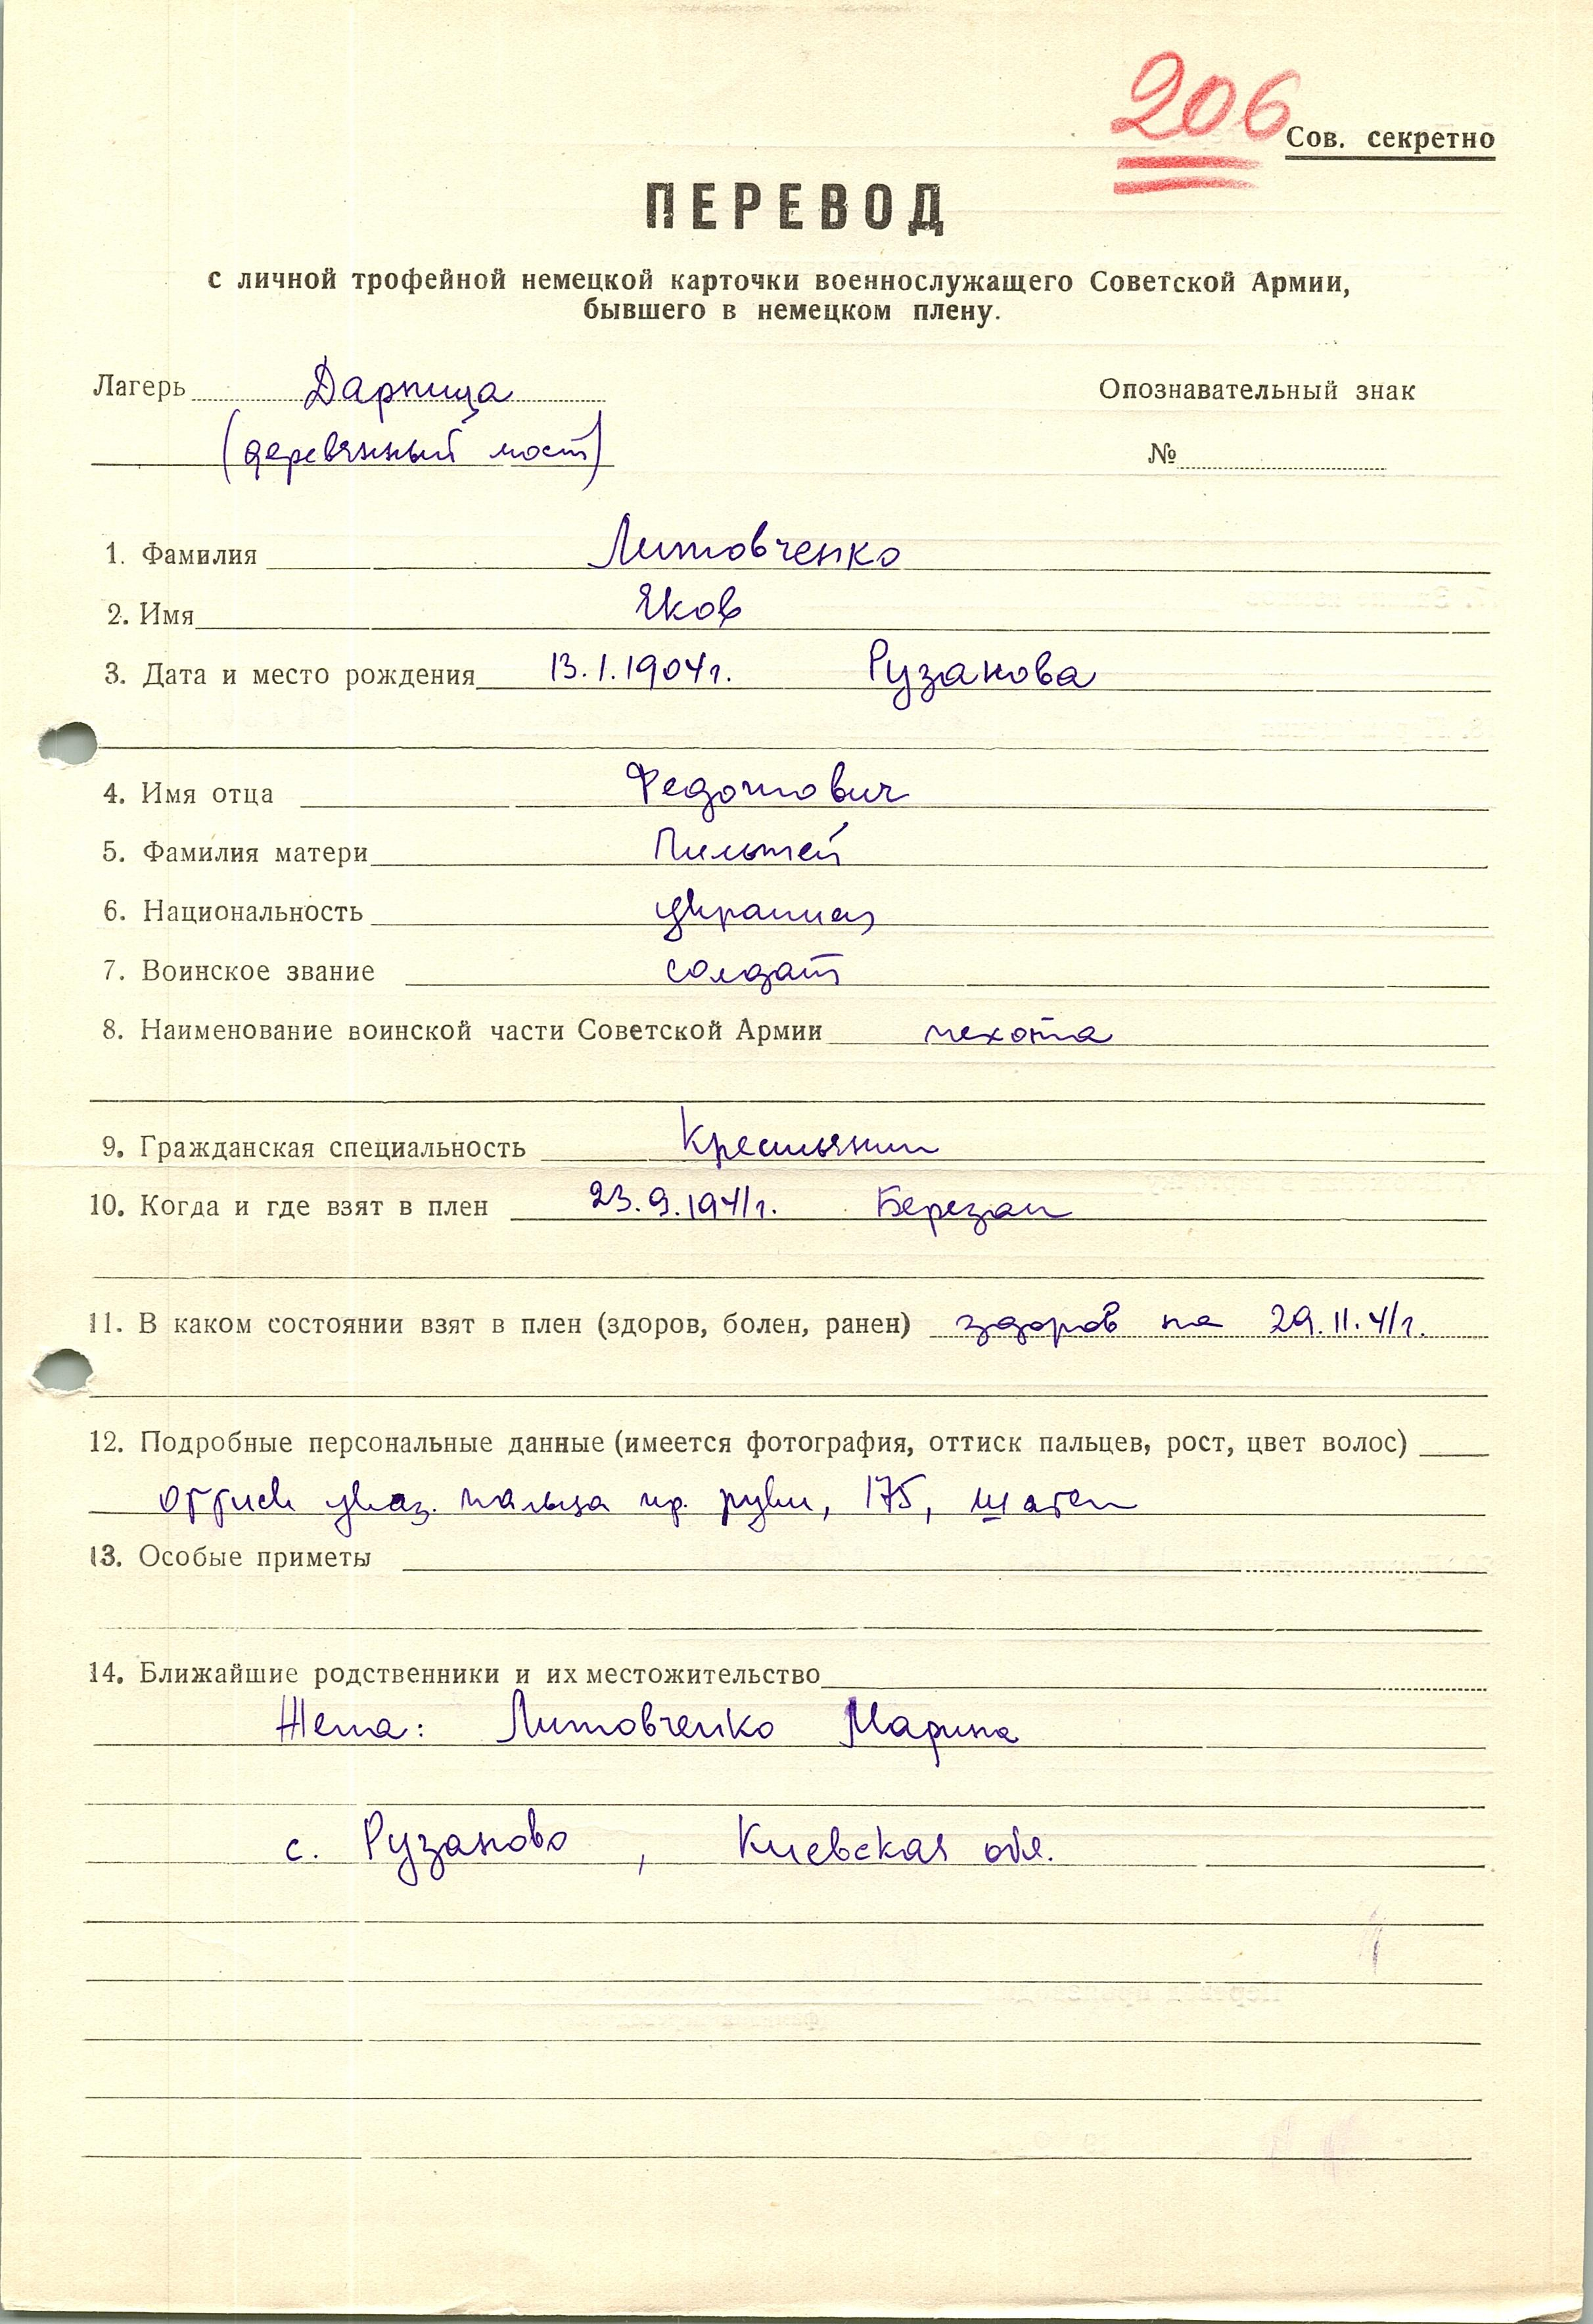 206
Сов. секретно
ПЕРЕВОД
с личной трофейной немецкой карточки военнослужащего Советской Армии,
бывшего в немецком плену.
Лагерь Дарница Опознавательный знак
(деревянный мост) №
1. Фамилия Литовченко
2. Имя Яков
3. Дата и место рождения 13.1.1904г. Рузанова
4. Имя отца Федотович
5. Фамилия матери
6. Национальность украинец
7. Воинское звание солдат
8. Наименование воинской части Советской Армии пехота
9. Гражданская специальность Крестьянин
10. Когда и где взят в плен 23.9.1941г. Березан
11. В каком состоянии взят в плен (здоров, болен, ранен) здоров на 29.11.41г.
12. Подробные персональные данные (имеется фотография, оттиск пальцев, рост, цвет волос)
оттиск указ. пальца пр. руки, 175, шатен
13. Особые приметы
14. Ближайшие родственники и их местожительство
Жена: Литовченко Марина
с. Рузаново, Киевская обл.